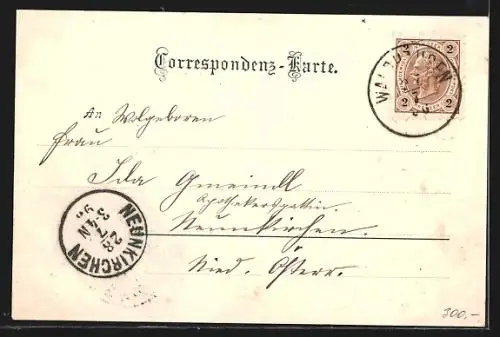 Correspondenz-Karte.
2
2 2
An Wolgeboren
Frau
Ida Gmeindl
Apothekersgattin
Neunkirchen.
Nied. Österr.
NEUNKIRCHEN
28
7
3-4N
98
300,-